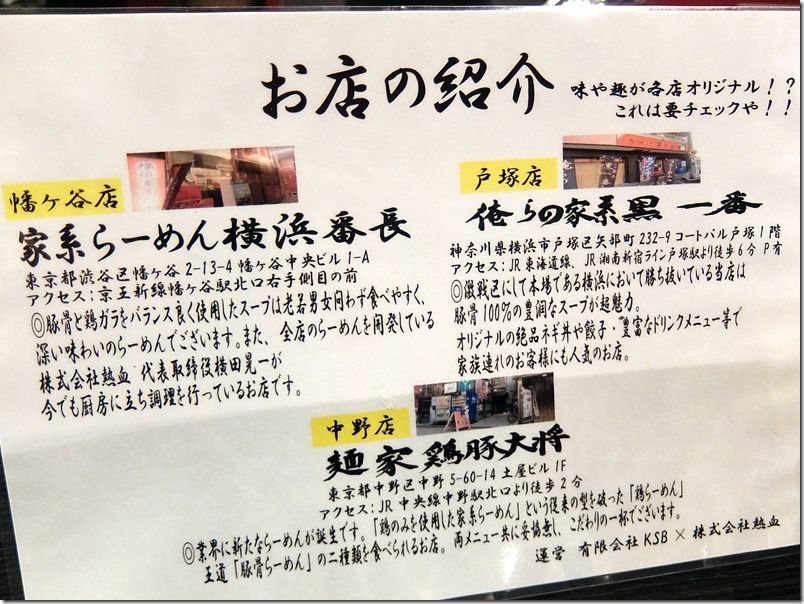 お店の紹介
味や趣が各店オリジナル！？
これは要チェックや！！
幡ヶ谷店
家系らーめん横浜番長
東京都渋谷区幡ヶ谷 2-13-4 幡ヶ谷中央ビル 1-A
アクセス：京王新線幡ヶ谷駅北口右手側目の前
◎豚骨と鶏ガラをバランス良く使用したスープは老若男女問わず食べやすく、
深い味わいのらーめんでございます。また、全店のらーめんを開発している
株式会社熱血 代表取締役横田晃一が
今でも厨房に立ち調理を行っているお店です。
戸塚店
俺らの家系黒 一番
神奈川県横浜市戸塚区矢部町 232-9 コートバル戸塚 1 階
アクセス：JR 東海道線、JR 湘南新宿ライン戸塚駅より徒歩 6 分 P 有
◎激戦区にして本場である横浜において勝ち抜いている当店は
豚骨 100％の豊潤なスープが超魅力。
オリジナルの絶品ネギ丼や餃子・豊富なドリンクメニュー等で
家族連れのお客様にも人気のお店。
中野店
麺家 鶏豚大将
東京都中野区中野 5-60-14 土屋ビル 1F
アクセス：JR 中央線中野駅北口より徒歩 2 分
◎業界に新たならーめんが誕生です。「鶏のみを使用した家系らーめん」という従来の型を破った「鶏らーめん」
王道「豚骨らーめん」の二種類を食べられるお店。両メニュー共に妥協無し、こだわりの一杯でございます。
運営 有限会社 KSB × 株式会社熱血